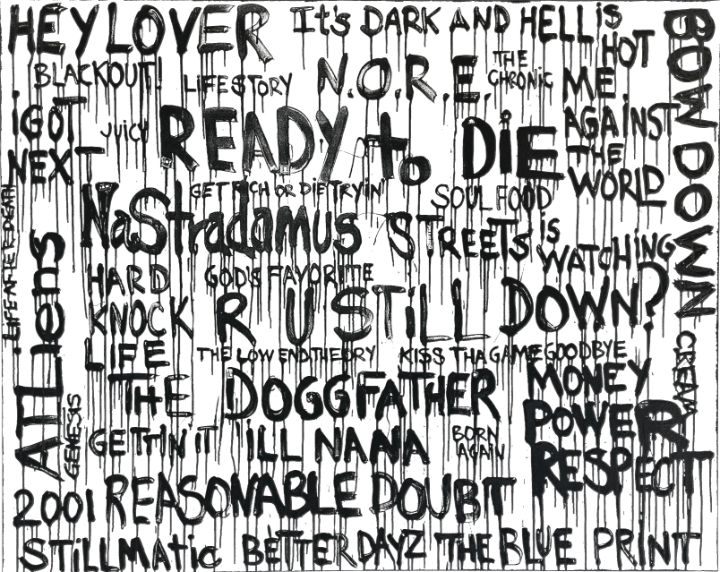 HEY LOVER
It's DARK AND HELL is HOT
BLACKOUT!
LIFE STORY
N.O.R.E.
THE CHRONIC
ME AGAINST THE WORLD
BOW DOWN
iGOT NEXT
JUICY
READY to DIE
GET RICH OR DIE TRYIN'
SOUL FOOD
LIFE AFTER DEATH
NaStradamus
STREETS is WATCHING
HARD KNOCK LIFE
GOD'S FAVORITE
R U STiLL DOWN?
ATLiens
THE LOW END THEORY
KISS THA GAME GOODBYE
CREAM
THE DOGGFATHER
MONEY POWER RESPECT
GENESIS
GETTiN iT
iLL NANA
BORN AGAIN
2001
REASONABLE DOUBT
STiLLMATic
BETTER DAYZ
THE BLUE PRINT